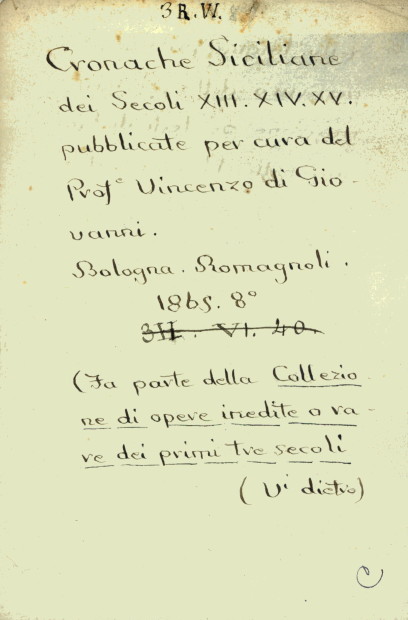 3 R.W.
Cronache Siciliane
dei Secoli XIII. XIV. XV.
pubblicate per cura del
Prof.e Vincenzo di Gio-
vanni.
Bologna. Romagnoli.
1865. 8°
3H. VI. 40.
(Fa parte della Collezio
ne di opere inedite o ra-
re dei primi tre secoli
(Vi dietro)